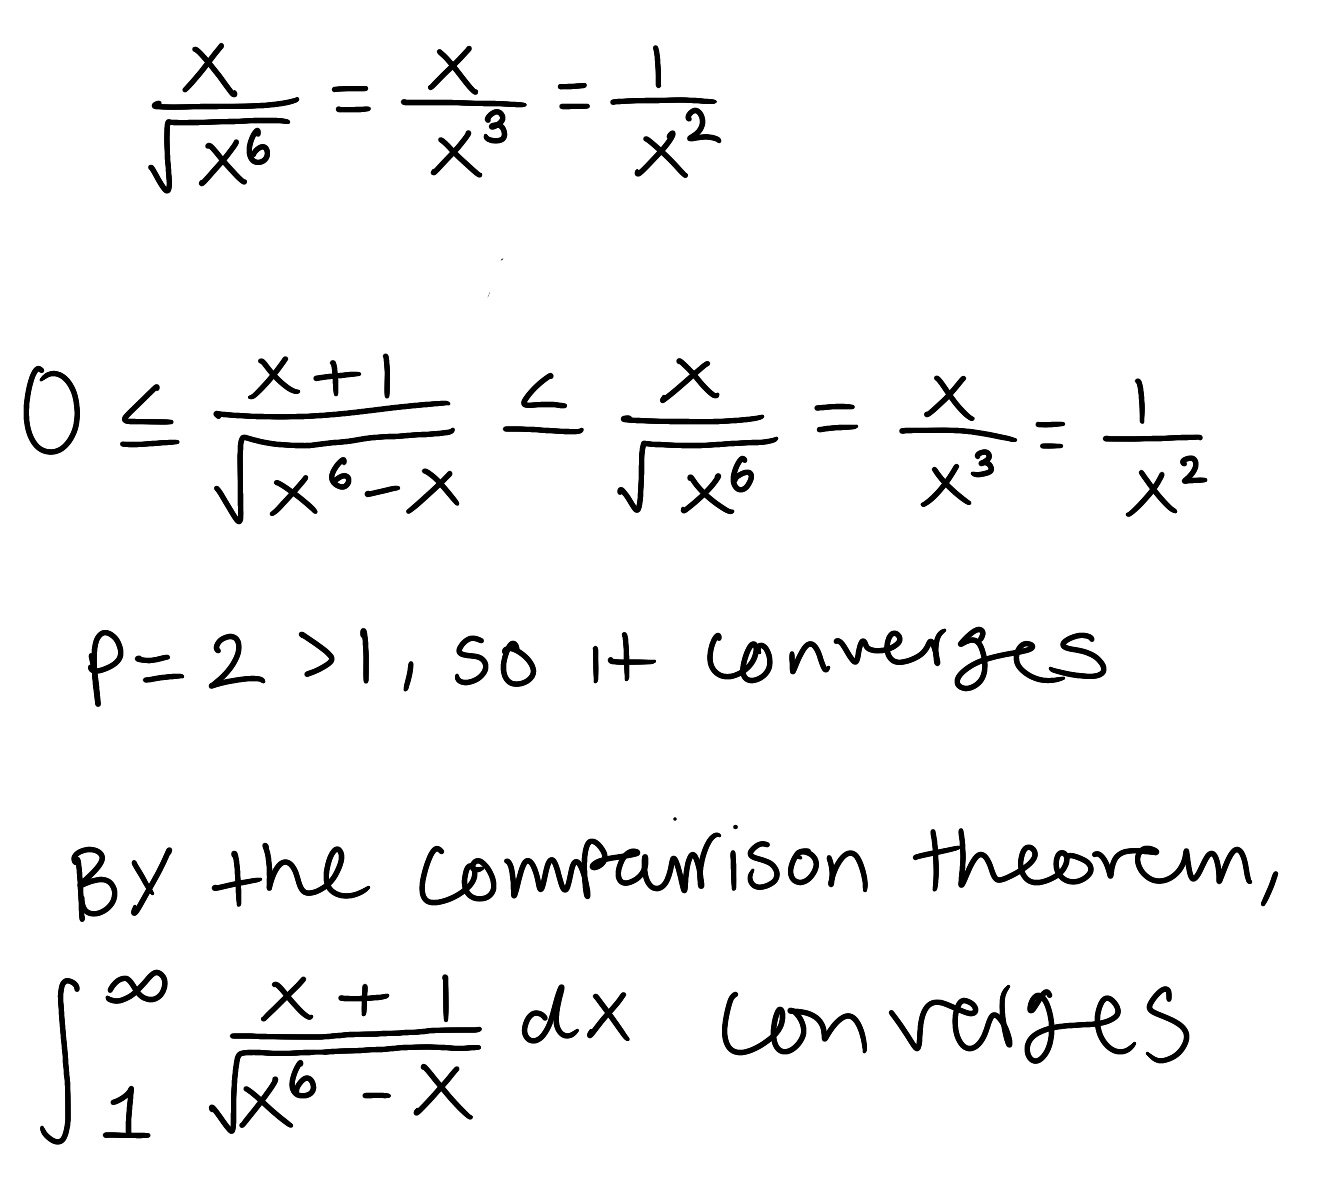 x/√(x⁶) = x/x³ = 1/x²
0 ≤ (x+1)/√(x⁶-x) ≤ x/√(x⁶) = x/x³ = 1/x²
P=2>1, so it converges
By the comparison theorem,
∫₁^∞ (x+1)/√(x⁶-x) dx converges